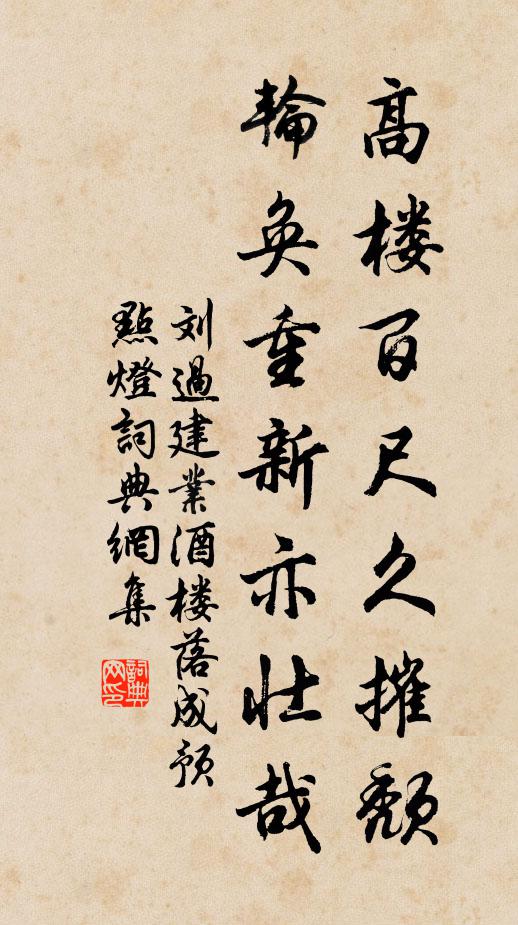 高楼百尺久摧颓
輪奂重新亦壮哉
刘過建業酒楼落成预
點燈詞典網集
詞典网印